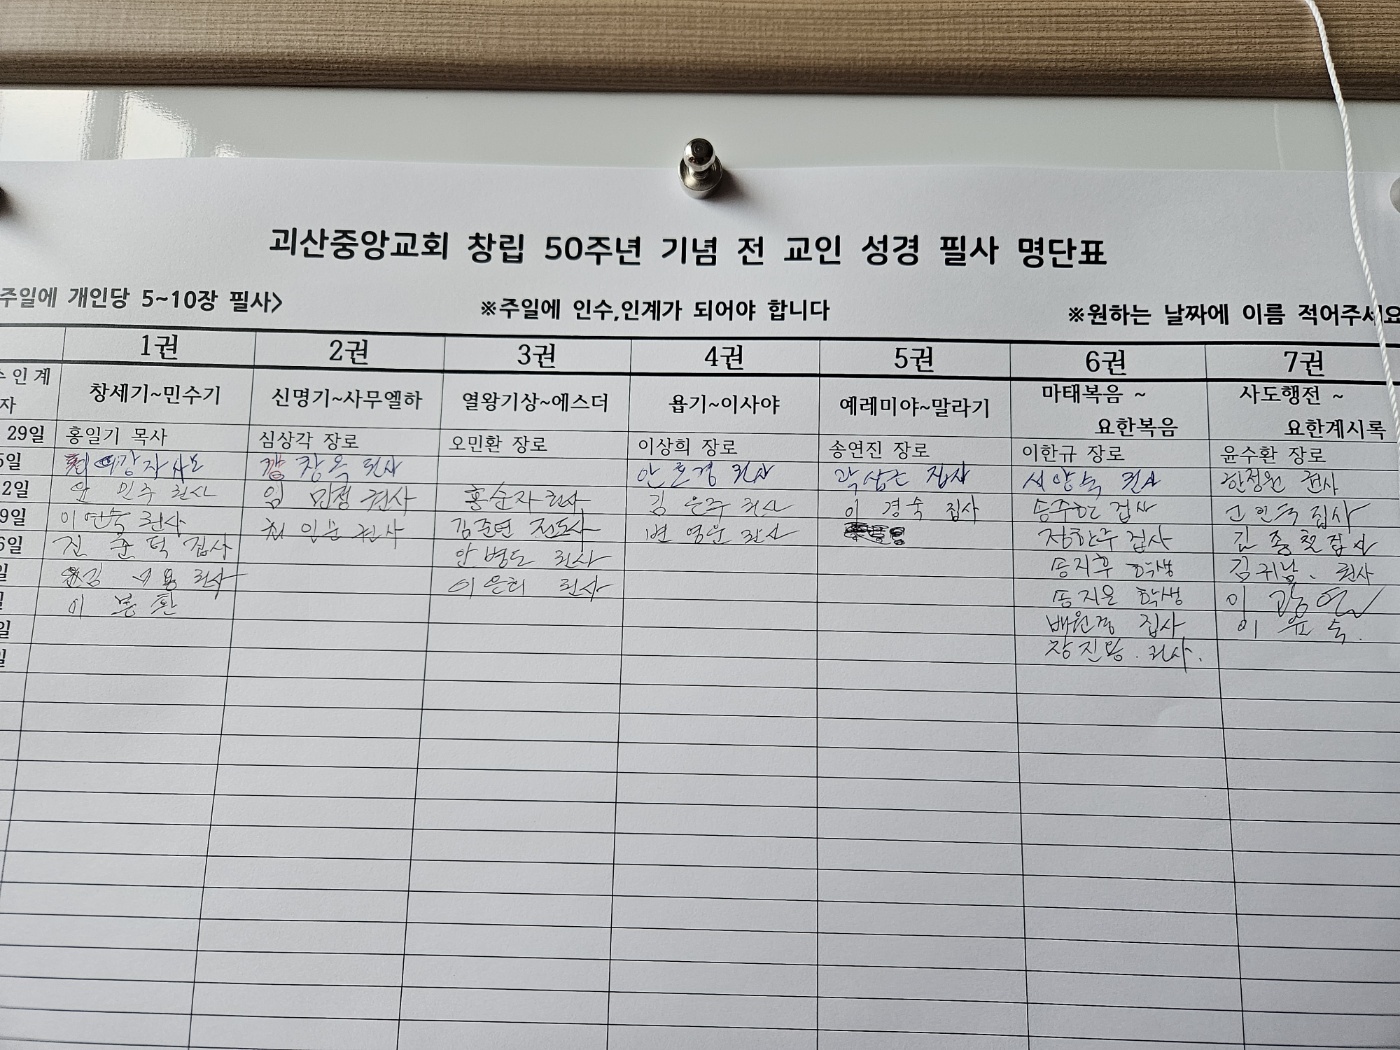 괴산중앙교회 창립 50주년 기념 전 교인 성경 필사 명단표
주일에 개인당 5~10장 필사> ※주일에 인수,인계가 되어야 합니다 ※원하는 날짜에 이름 적어주세요
1권 2권 3권 4권 5권 6권 7권
수인계
자
창세기~민수기 신명기~사무엘하 열왕기상~에스더 욥기~이사야 예레미야~말라기 마태복음 ~ 요한복음 사도행전 ~ 요한계시록
29일 홍일기 목사 심상각 장로 오민환 장로 이상희 장로 송연진 장로 이한규 장로 윤수환 장로
5일 강창옥 권사 안호경 권사 곽삼근 집사 서양숙 권사 한정원 권사
2일 안인주 권사 임미정 권사 홍순자 권사 김은주 권사 이경숙 집사 송주한 집사 집사
9일 이연숙 권사 최인순 권사 김준연 전도사 변영운 권사 장한수 집사 김종철 집사
6일 진준덕 집사 안병도 권사 송지후 학생 김귀남. 권사
일 권사 이은희 권사 송지율 학생 이광연
일 이봉환 백원정 집사 이윤숙.
일 장진명. 권사.
일